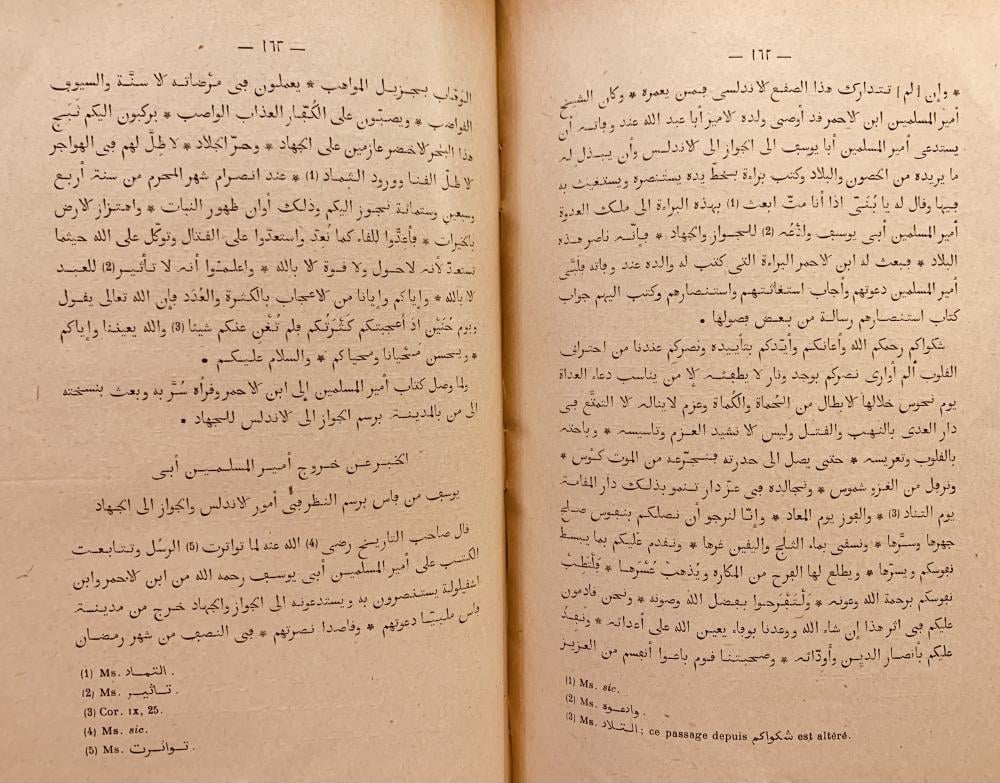 — ١٦٢ —
* وإن [لم] تتدارك هذا الصقع الاندلسى فمن يعمره * وكان الشيخ
أمير المسلمين ابن الاحمر قد أوصى ولده الامير أبا عبد الله عند وفاته أن
يستدعى أمير المسلمين أبا يوسف الى الجواز الى الاندلس وأن يبذل له
ما يريده من الحصون والبلاد وكتب براءة بخطّ يده يستنصره ويستغيث به
فيها وقال له يا بُنَىّ اذا أنا متّ ابعث (1) بهذه البراءة الى ملك العدوة
أمير المسلمين أبى يوسف وادْعُه (2) للجواز والجهاد * فإنّه ناصر هذه
البلاد * فبعث له ابن الاحمر البراءة التى كتب له والده عند وفاته فلبّى
أمير المسلمين دعوتهم وأجاب استغاثتهم واستنصارهم وكتب اليهم جواب
كتاب استنصارهم رسالة من بعض فصولها .
شكواكم رحمكم الله وأعانكم وأيّدكم بتأييده ونصركم عندنا من احتراق
القلوب ألم أوارى نصركم بوجد ونار لا يطفئه الا من يناسب دعاء العداة
يوم نجوس خلالها الابطال من الحُماة والكُماة وعزم لاينالا الا التمتّع فى
دار العدى بالنهب والقتل وليس الا نشيد العزم وتاسيسه * وباحته
بالقلوب وتعريسه * حتى يصل الى حدرته فنجرّعه من الموت كئوس *
ونرفل من الغزو شموس * ونجالده فى عزّ دار تنمو بذلك دار المقامة
يوم التناد (3) * والفوز يوم المعاد * وإنّا لنرجو أن نصلكم بنفوس صلح
جهرها وسرّها * ونسقى بماء الثلج واليقين غرها * ونقدم عليكم بما يبسط
نفوسكم ويسرّها * ويطلع لها الفرح من المكاره ويُذهبُ عُسْرها * فلْتَطِبْ
نفوسكم برحمة الله وعونه * ولْتَفْرحوا بفضل الله وصونه * ونحن قادمون
عليكم فى اثر هذا إن شاء الله ووعدنا بوفاء يعين الله على أعدائه * ونَفِدُ
عليكم بأنصار الدين وأودّائه * وصحبتنا قوم باعوا أنفسم من العزيز
(1) Ms. sic.
(2) Ms. وادعوه .
(3) Ms. التلاد ; ce passage depuis شكواكم est altéré.
— ١٦٣ —
الوهّاب بجزيل المواهب * يعملون فى مرضاته الا سنّة والسيوف
القواضب * ويصبّون على الكُفّار العذاب الواصب * يركبون اليكم ثَبَج
هذا البحر الاخضر عازمين على الجهاد * وحرّ الجلاد * لا ظلّ لهم فى الهواجر
الا ظلّ القنا وورود الثماد (1) * عند انصرام شهر المحرم من سنة أربع
وسبعين وستمائة نجوز اليكم وذلك أوان ظهور النبات * واهتزاز الارض
بالخيرات * فأعدّوا للقاء كما نُعدّ واستعدّوا على القتال وتوكّل على الله حيثما
نستعدّ لأنه لا حول ولا قوة الا بالله * واعلموا أنه لا تأثير (2) للعبد
الا بالله * وإياكم وإيانا من الاعجاب بالكثرة والعُدَد فإن الله تعالى يقول
ويوم حُنَيْن اذ أعجبتكم كَثْرَتُكم فلم تُغْن عنكم شيئا (3) والله يعيننا وإياكم
* ويحسن مَحْيانا ومحياكم * والسلام عليكم .
ولما وصل كتاب أمير المسلمين إلى ابن الاحمر وقرأه سُرَّ به وبعث بنسخته
الى من بالمدينة برسم الجواز الى الاندلس للجهاد .
الخبر عن خروج أمير المسلمين أبى
يوسف من فاس برسم النظر فى أمور الاندلس والجواز الى الجهاد
قال صاحب التاريخ رضى (4) الله عنه لما تواترت (5) الرسُل وتتابعت
الكتب على أمير المسلمين أبى يوسف رحمه الله من ابن الاحمر وابن
اشقيلولة يستنصرون به ويستدعونه الى الجواز والجهاد خرج من مدينة
فاس ملبيّا دعوتهم * وقاصدا نصرتهم * فى النصف من شهر رمضان
(1) Ms. التماد .
(2) Ms. تاثير .
(3) Cor. IX, 25.
(4) Ms. sic.
(5) Ms. توانرت .